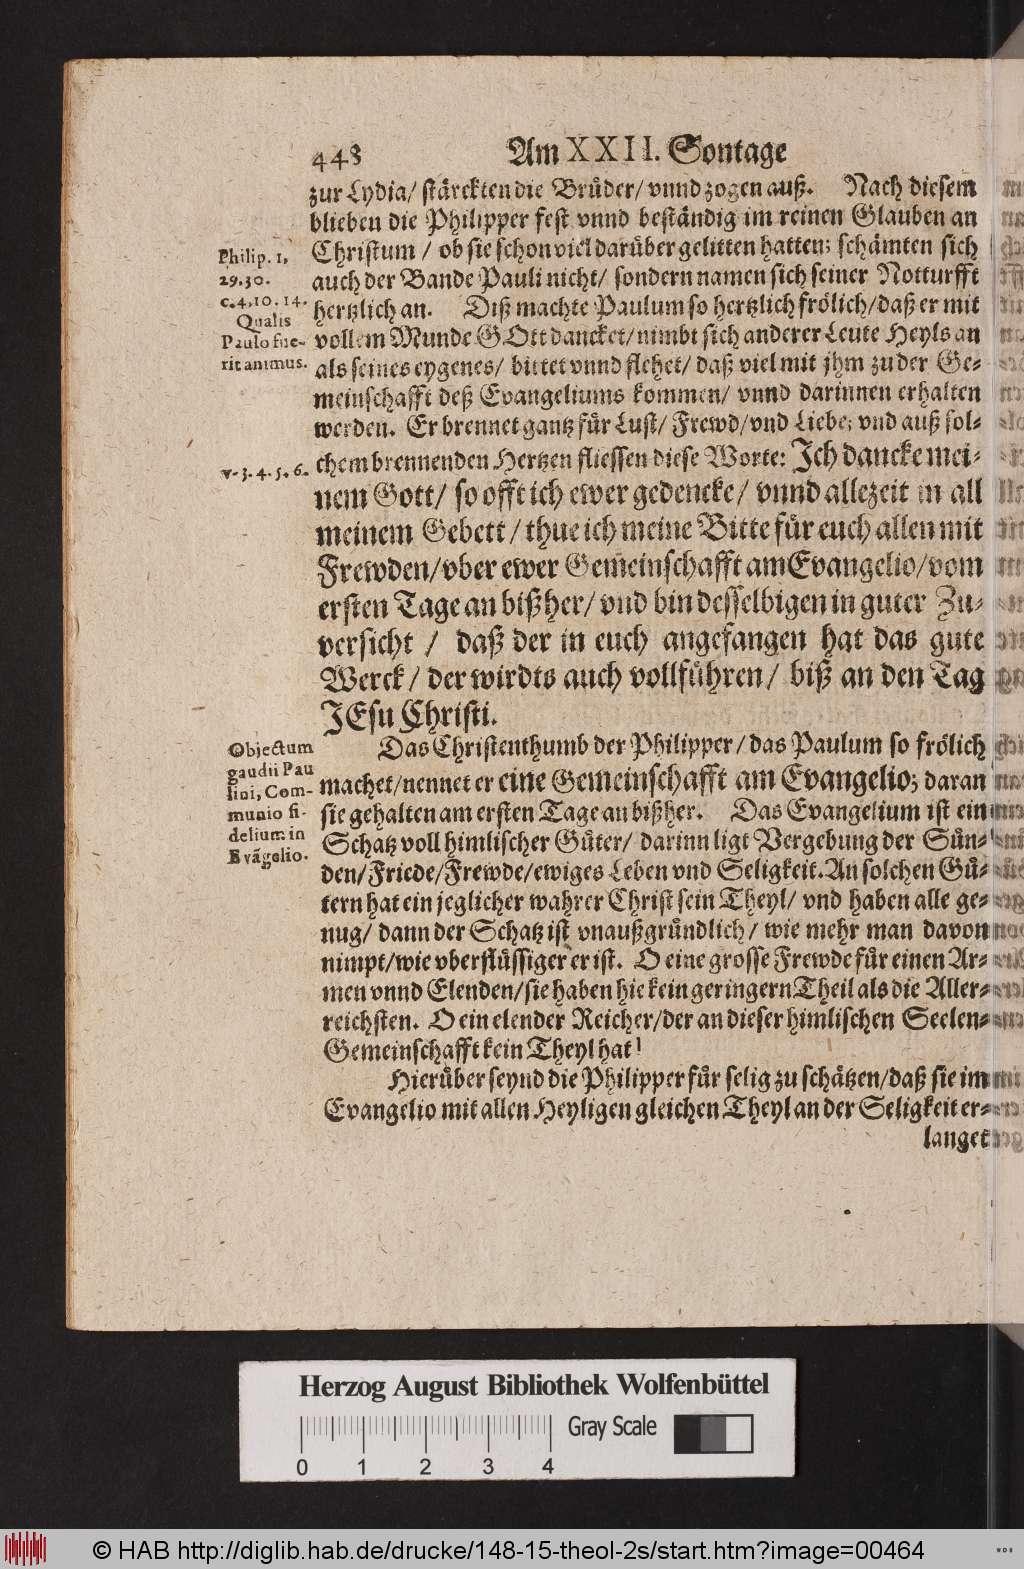 448 Am XXII. Sontage
zur Lydia/ stärckten die Brüder/ vnnd zogen auß. Nach diesem
blieben die Philipper fest vnnd beständig im reinen Glauben an
Christum / ob sie schon viel darüber gelitten hatten; schämten sich
auch der Bande Pauli nicht/ sondern namen sich seiner Notturfft
hertzlich an. Diß machte Paulum so hertzlich frölich/ daß er mit
vollem Munde GOtt dancket/ nimbt sich anderer Leute Heyls an
als seines eygenes/ bittet vnnd flehet/ daß viel mit jhm zu der Ge-
meinschafft deß Evangeliums kommen/ vnnd darinnen erhalten
werden. Er brennet gantz für Lust/ Frewd/ vnd Liebe; vnd auß sol-
chem brennenden Hertzen fliessen diese Worte: Ich dancke mei-
nem Gott/ so offt ich ewer gedencke/ vnnd allezeit in all
meinem Gebett/ thue ich meine Bitte für euch allen mit
Frewden/ vber ewer Gemeinschafft am Evangelio/ vom
ersten Tage an bißher/ vnd bin desselbigen in guter Zu-
versicht / daß der in euch angefangen hat das gute
Werck/ der wirdts auch vollführen/ biß an den Tag
JEsu Christi.
Das Christenthumb der Philipper/ das Paulum so frölich
machet/ nennet er eine Gemeinschafft am Evangelio; daran
sie gehalten am ersten Tage an bißher. Das Evangelium ist ein
Schatz voll himlischer Güter/ darinn ligt Vergebung der Sün-
den/ Friede/ Frewde/ ewiges Leben vnd Seligkeit. An solchen Gü-
tern hat ein jeglicher wahrer Christ sein Theyl/ vnd haben alle ge-
nug/ dann der Schatz ist vnaußgründlich/ wie mehr man davon
nimpt/ wie vberflüssiger er ist. O eine grosse Frewde für einen Ar-
men vnnd Elenden/ sie haben hie kein geringern Theil als die Aller-
reichsten. O ein elender Reicher/ der an dieser himlischen Seelen-
Gemeinschafft kein Theyl hat!
Hierüber seynd die Philipper für selig zu schätzen/ daß sie im
Evangelio mit allen Heyligen gleichen Theyl an der Seligkeit er-
langet
Philip. 1,
29.30.
c.4.10.14.
Qualis
Paulo fue-
rit animus.
v. 3. 4. 5. 6.
Objectum
gaudii Pau
lini, Com-
munio fi-
delium in
Evãgelio.
Herzog August Bibliothek Wolfenbüttel
Gray Scale
0 1 2 3 4
© HAB http://diglib.hab.de/drucke/148-15-theol-2s/start.htm?image=00464